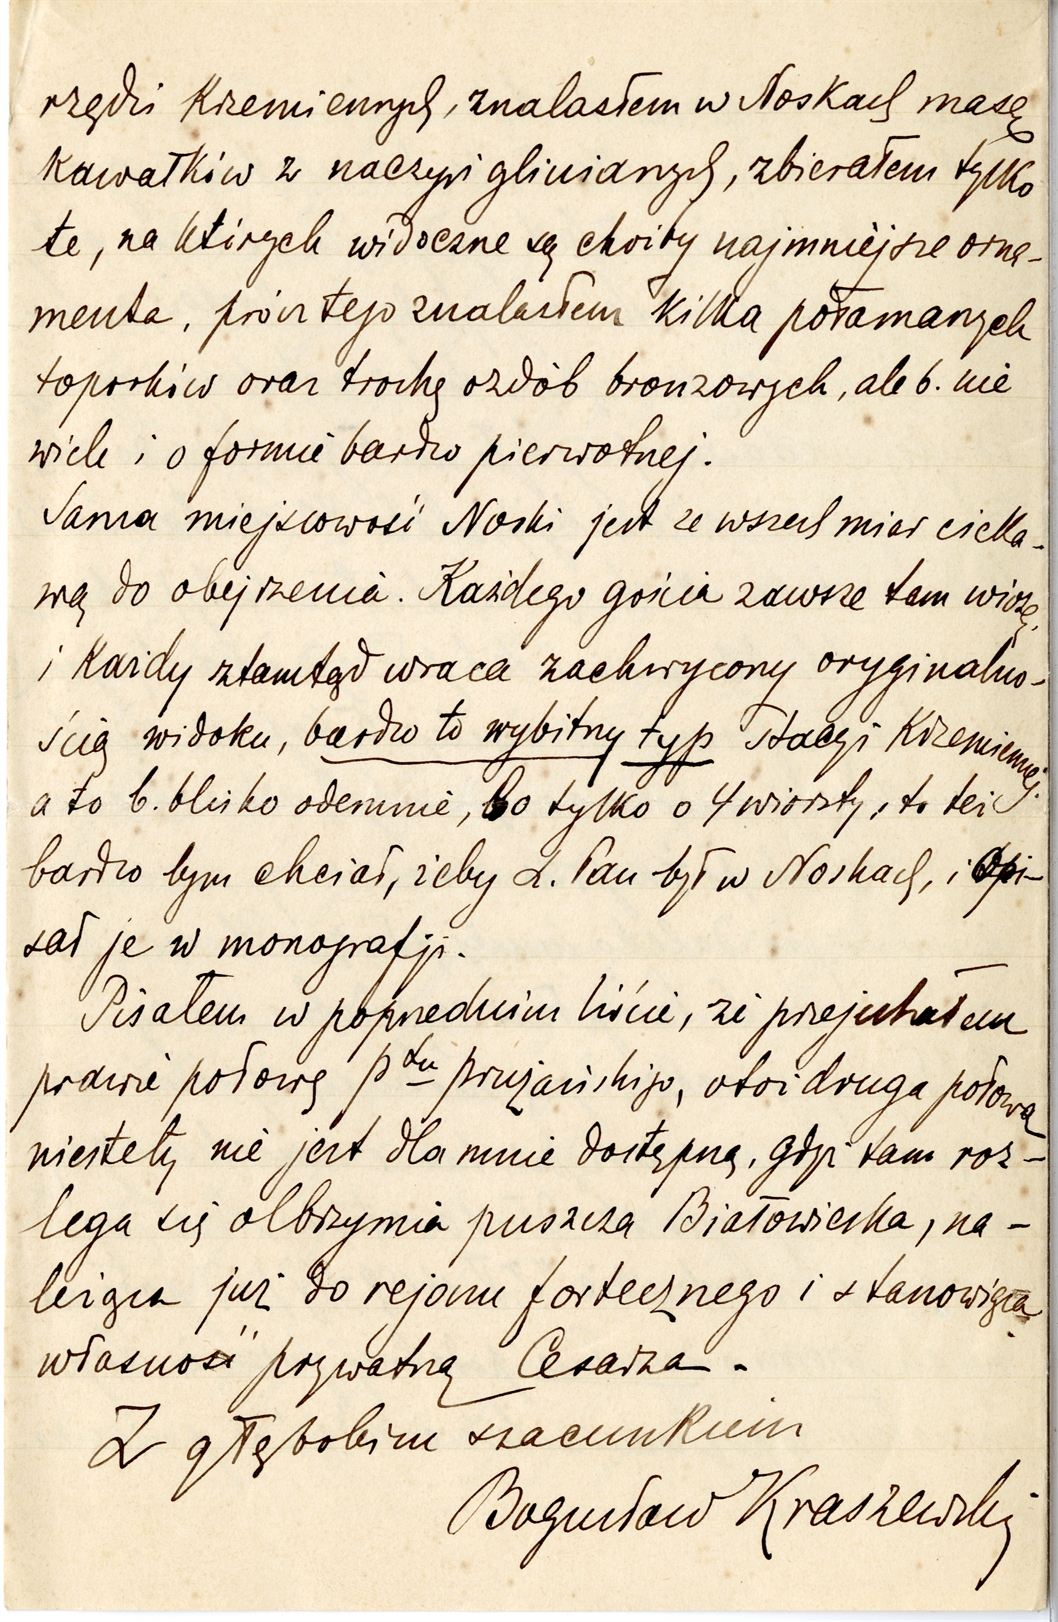 rzędzi krzemiennych, znalazłem w Noskach masę
kawałków z naczyń glinianych, zbierałem tylko
te, na których widoczne są choćby najmniejsze orna-
menta, prócz tego znalazłem kilka połamanych
toporków oraz trochę ozdób bronzowych, ale b. nie
wiele i o formie bardzo pierwotnej.
Sama miejscowość Noski jest ze wszech miar cieka-
wą do obejrzenia. Każdego gościa zawsze tam wiozę,
i każdy ztamtąd wraca zachwycony oryginalno-
ścią widoku, bardzo to wybitny typ stacyi krzemiennej.
a to b. blisko odemnie, bo tylko o 4 wiorsty, to też
bardzo bym chciał, żeby Sz. Pan był w Noskach, i opi-
sał je w monografji.
Pisałem w poprzednim liście, że przejechałem
prawie połowę ptu prużańskiego, otóż druga połowa
niestety nie jest dla mnie dostępną, gdyż tam roz-
lega się olbrzymia puszcza Białowieska, na-
leżąca już do rejonu fortecznego i stanowiąca
własność prywatną Cesarza.
Z głębokim szacunkiem
Bogusław Kraszewski